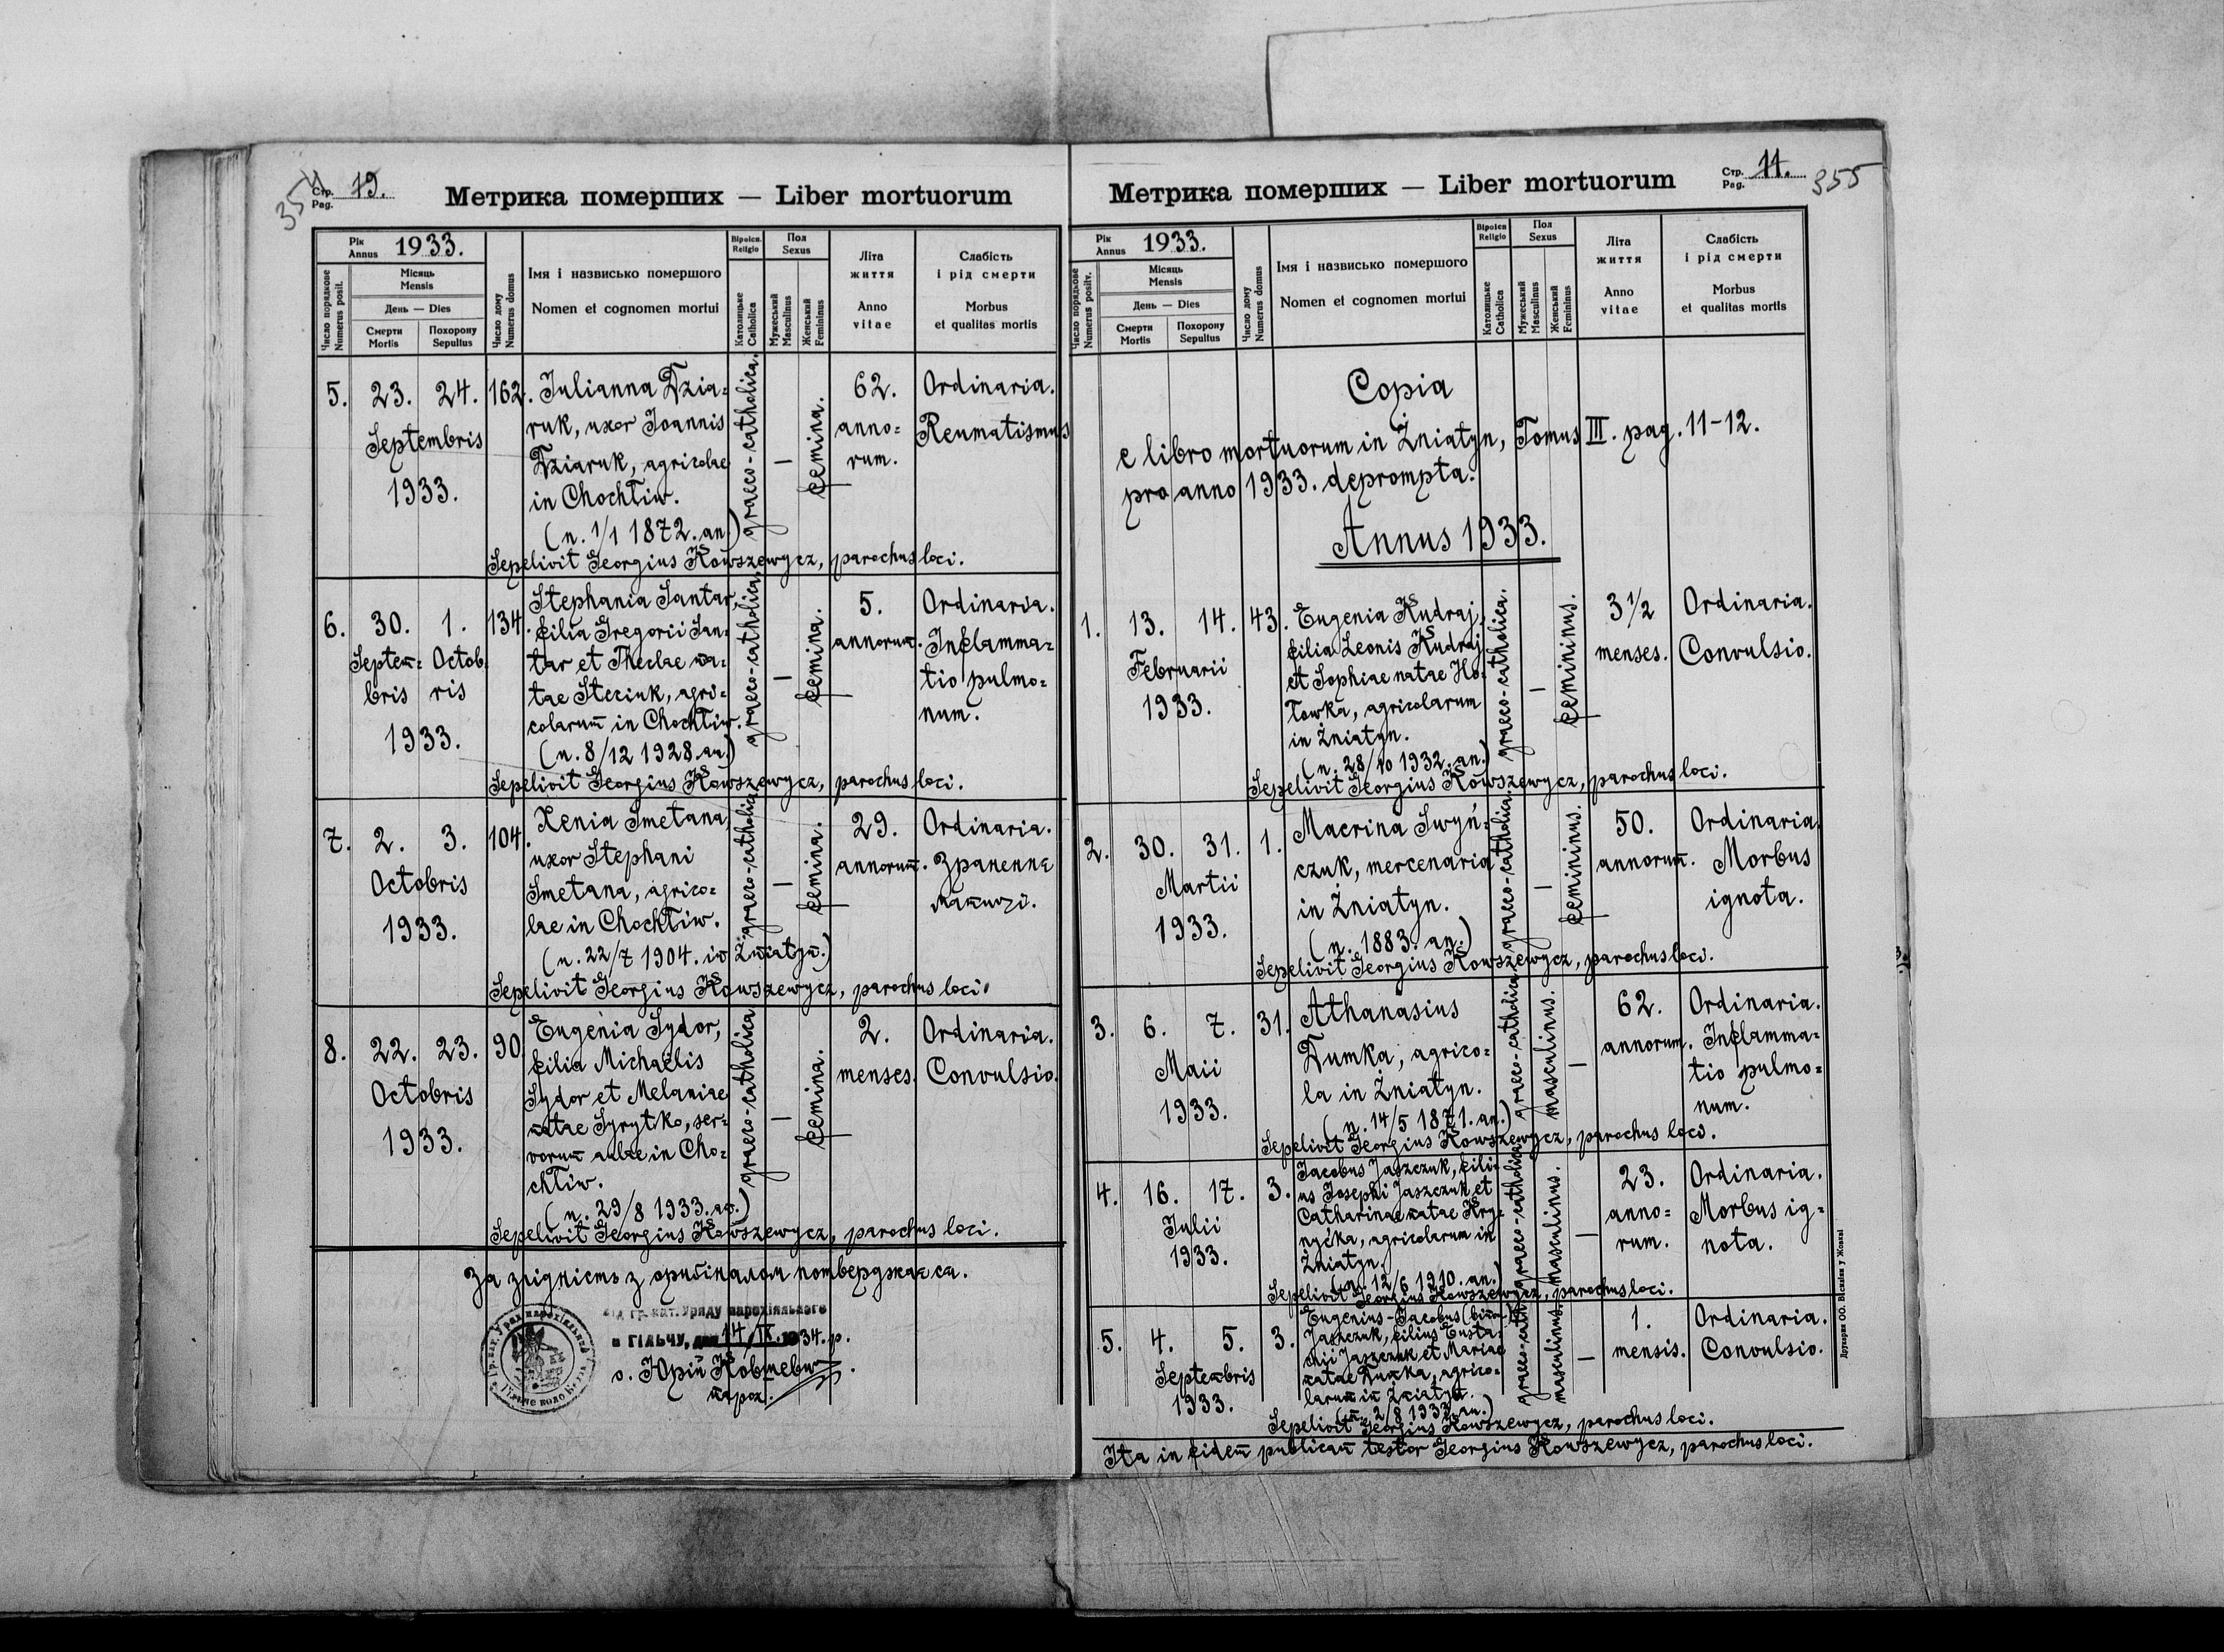 354
Стр. Pag. 19.
Метрика померших — Liber mortuorum
Рік Annus 1933.
Число порядкове Numerus posit.
Місяць Mensis
День — Dies
Смерти Mortis
Похорону Sepultus
Число дому Numerus domus
Імя і назвисько помершого
Nomen et cognomen mortui
Віроісп. Religio
Католицьке Catholica
Пол Sexus
Мужеський Masculinus
Женський Femininus
Літа життя
Anno vitae
Слабість і рід смерти
Morbus et qualitas mortis
5. 23. 24. 162. Iulianna Dzia= graeco-catholica. — femina. 62. Ordinaria.
ruk, uxor Ioannis anno= Reumatismus
Septembris Dziaruk, agricolae rum.
1933. in Chochłiw.
(n. 1/1 1872. an.)
Sepelivit Georgius Kowszewycz, parochus loci.
6. 30. 1. 134. Stephania Santar, graeco-catholica. — femina. 5. Ordinaria.
filia Gregorii San= annorum. Inflamma=
Septem= Octob. tar et Theclae na= tio pulmo=
bris ris tae Steciuk, agri= num.
1933. colarum in Chochłiw.
(n. 8/12 1928. an.)
Sepelivit Georgius Kowszewycz, parochus loci.
7. 2. 3. 104. Xenia Smetana, graeco-catholica — femina. 29. Ordinaria.
uxor Stephani annorum. Зранення
Octobris Smetana, agrico= матиці.
1933. lae in Chochłiw.
(n. 22/7 1904. in Żniatyn.)
Sepelivit Georgius Kowszewycz, parochus loci.
8. 22. 23. 90. Eugenia Sydor, graeco-catholica — femina. 2. Ordinaria.
filia Michaëlis menses. Convulsio.
Octobris Sydor et Melaniae
1933. natae Syrytko, ser=
vorum aulae in Cho=
chłiw.
(n. 29/8 1933. an.)
Sepelivit Georgius Kowszewycz, parochus loci.
За згідність з оригіналом потверджається.
Від гр. кат. Уряду парохіяльного
в ГІЛЬЧУ, дня 14/IX. 1934. р.
о. Юрій Ковшевич
парох.
Стр. Pag. 11.
355
Метрика померших — Liber mortuorum
Рік Annus 1933.
Число порядкове Numerus positv.
Місяць Mensis
День — Dies
Смерти Mortis
Похорону Sepultus
Число дому Numerus domus
Імя і назвисько помершого
Nomen et cognomen mortui
Віроісп Religio
Католицьке Catholica
Пол Sexus
Мужеський Masculinus
Женський Femininus
Літа життя
Anno vitae
Слабість і рід смерти
Morbus et qualitas mortis
Copia
e libro mortuorum in Żniatyn, Tomus III. pag. 11-12.
pro anno 1933. deprompta.
Annus 1933.
1. 13. 14. 43. Eugenia Kudraj, graeco-catholica. — femininus. 3 1/2 Ordinaria.
filia Leonis Kudraj menses. Convulsio.
Februarii et Sophiae natae Ho=
1933. łowka, agricolarum
in Żniatyn.
(n. 28/10 1932. an.)
Sepelivit Georgius Kowszewycz, parochus loci.
2. 30. 31. 1. Macrina Iwyń= graeco-catholica. — femininus. 50. Ordinaria.
czuk, mercenaria annorum. Morbus
Martii in Żniatyn. ignota.
1933. (n. 1883. an.)
Sepelivit Georgius Kowszewycz, parochus loci.
3. 6. 7. 31. Athanasius graeco-catholica masculinus. — 62. Ordinaria.
Dumka, agrico= annorum. Inflamma=
Maii la in Żniatyn. tio pulmo=
1933. (n. 14/5 1871. an.) num.
Sepelivit Georgius Kowszewycz, parochus loci.
4. 16. 17. 3. Jacobus Jaszczuk, fili= graeco-catholica masculinus. — 23. Ordinaria.
us Josephi Jaszczuk et anno= Morbus ig=
Iulii Catharinae natae Kry= rum. nota.
1933. nyćka, agricolarum in
Żniatyn.
(n. 12/6 1910. an.)
Sepelivit Georgius Kowszewycz, parochus loci.
5. 4. 5. 3. Eugenius-Jacobus graeco-cath. masculinus. — 1. Ordinaria.
Jaszczuk, filius Eusta= mensis. Convulsio.
Septembris chii Jaszczuk et Mariae
1933. natae Dumka, agrico=
larum in Żniatyn.
(n. 2/8 1933. an.)
Sepelivit Georgius Kowszewycz, parochus loci.
Ita in fidem publicam testor Georgius Kowszewycz, parochus loci.
Друкарня ОО. Василіян у Жовкві